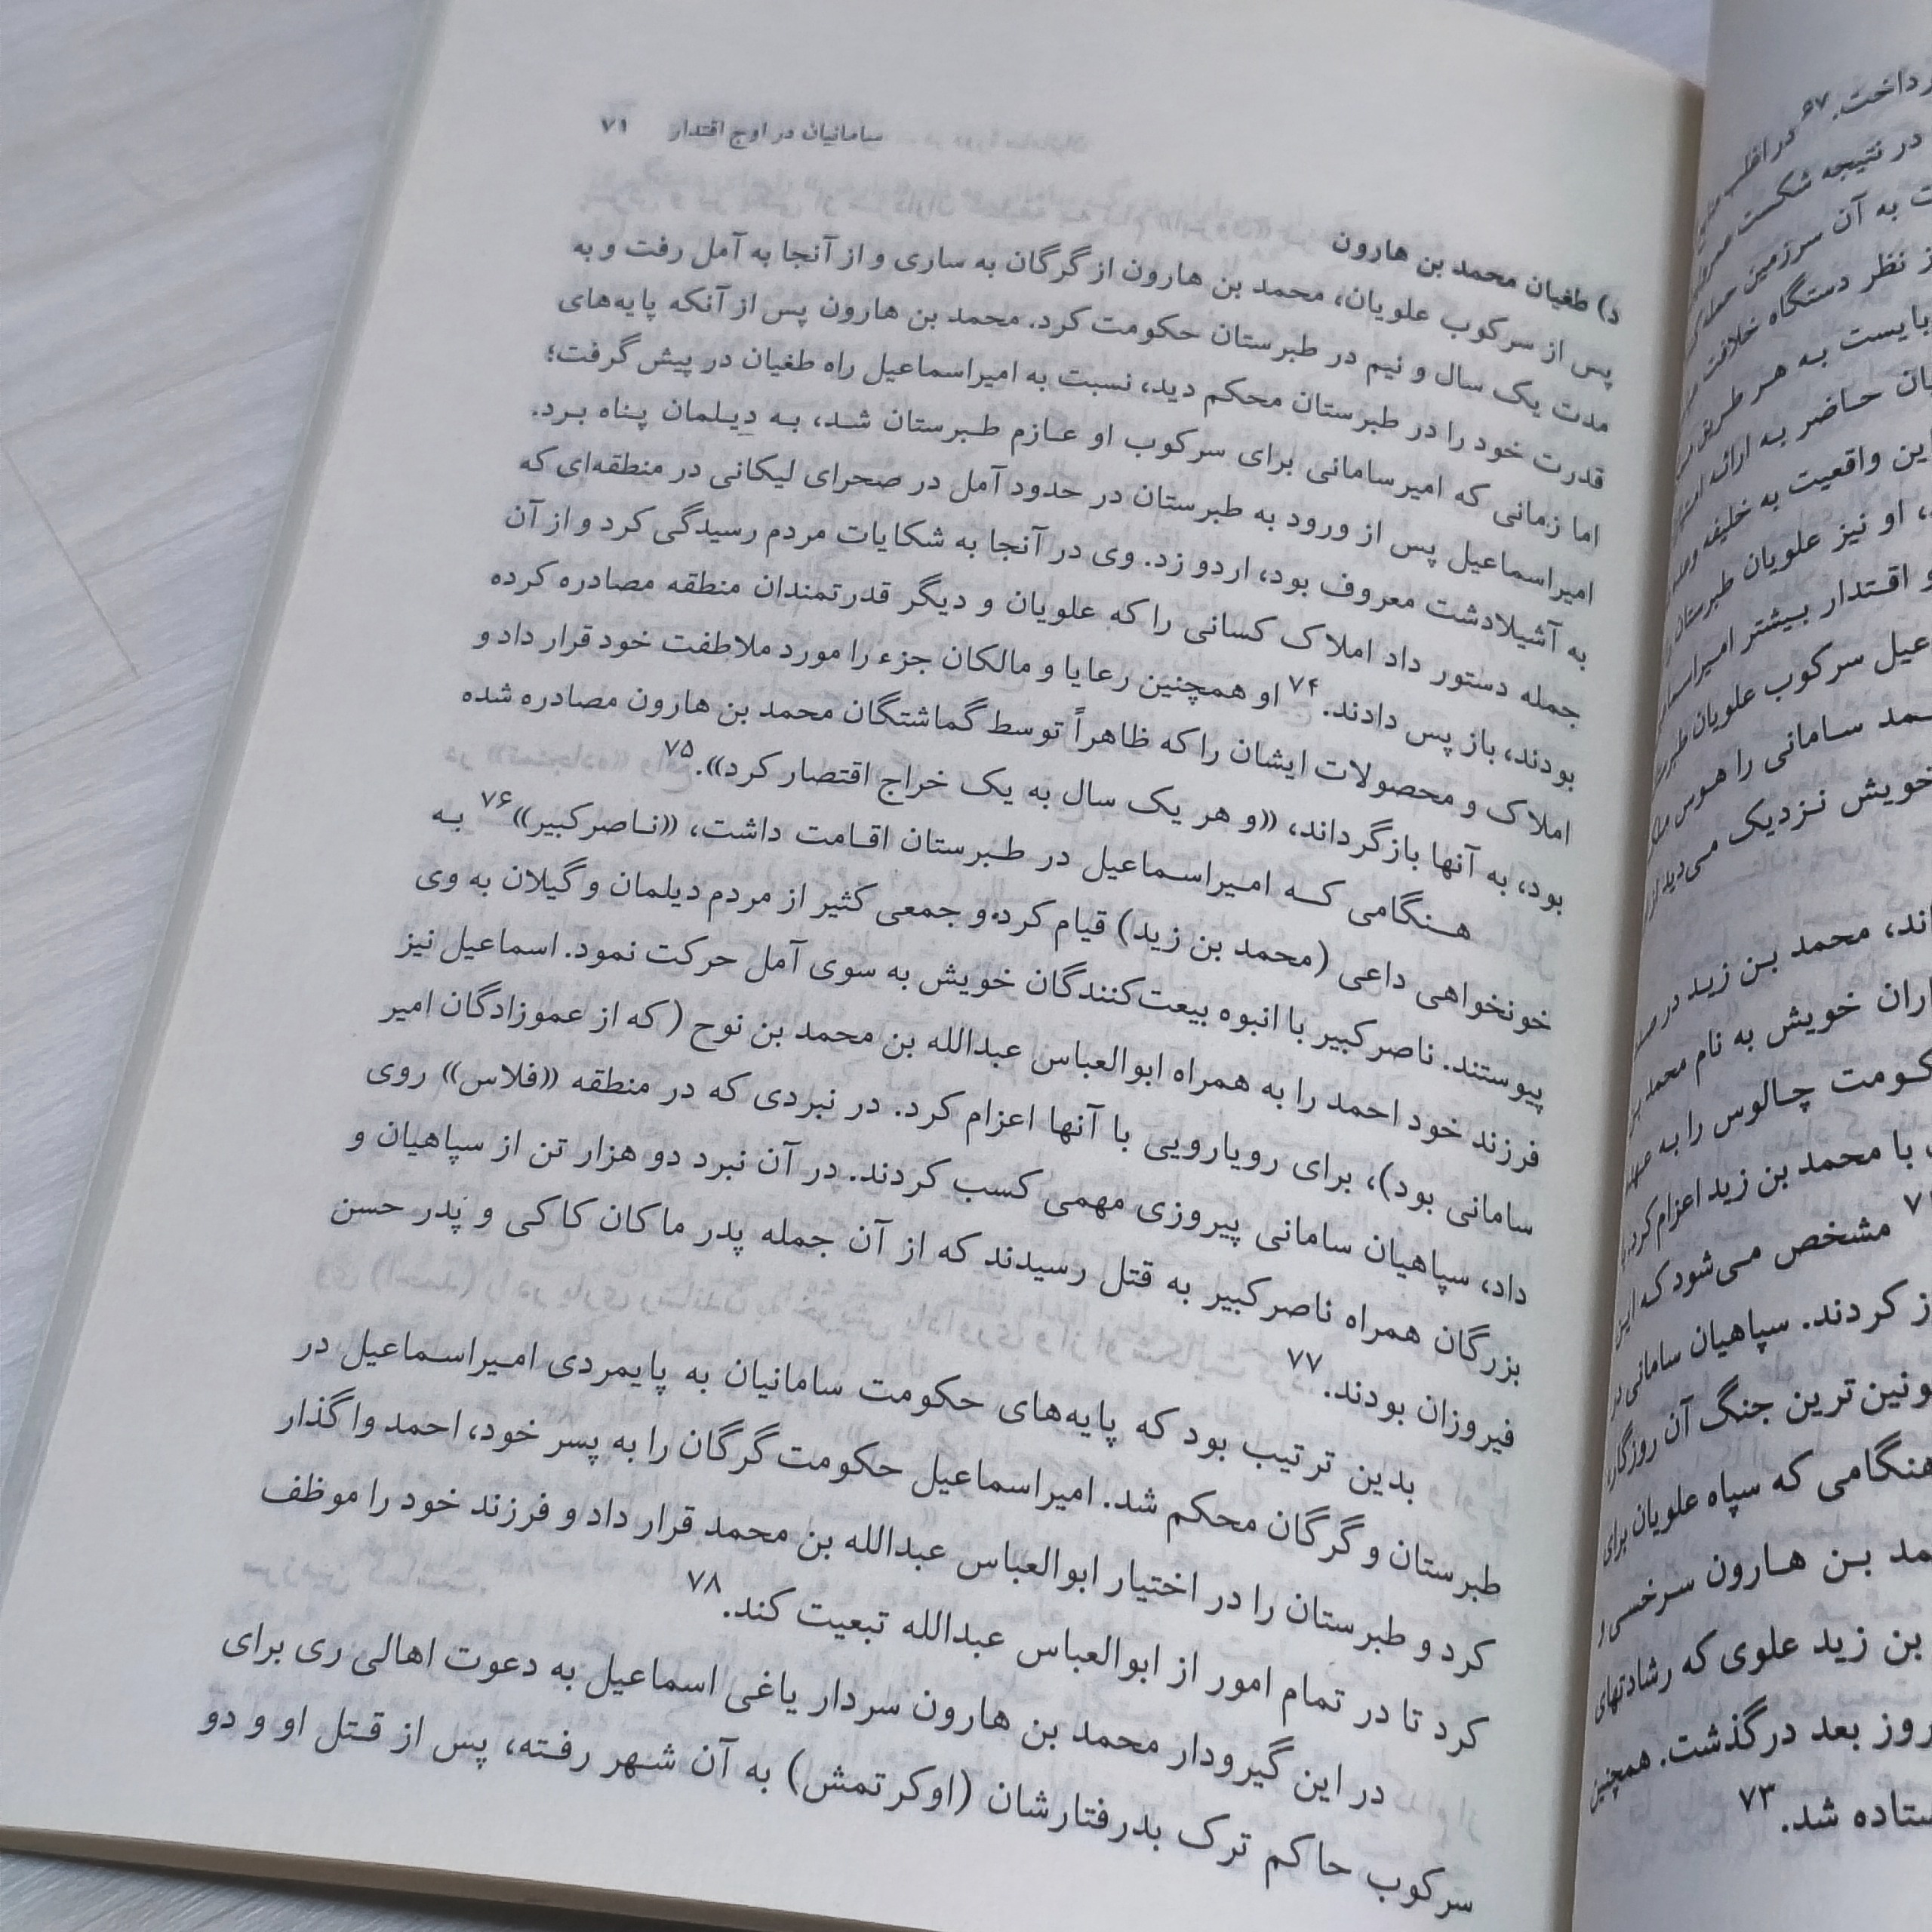 سامانیان در اوج اقتدار ۷۱
د) طغیان محمد بن هارون
پس از سرکوب علویان، محمد بن هارون از گرگان به ساری و از آنجا به آمل رفت و به
مدت یک سال و نیم در طبرستان حکومت کرد. محمد بن هارون پس از آنکه پایه‌های
قدرت خود را در طبرستان محکم دید، نسبت به امیراسماعیل راه طغیان در پیش گرفت؛
اما زمانی که امیر سامانی برای سرکوب او عازم طبرستان شد، به دیلمان پناه برد.
امیراسماعیل پس از ورود به طبرستان در حدود آمل در صحرای لیکانی در منطقه‌ای که
به آشیلادشت معروف بود، اردو زد. وی در آنجا به شکایات مردم رسیدگی کرد و از آن
جمله دستور داد املاک کسانی را که علویان و دیگر قدرتمندان منطقه مصادره کرده
بودند، باز پس دادند.۷۴ او همچنین رعایا و مالکان جزء را مورد ملاطفت خود قرار داد و
املاک و محصولات ایشان را که ظاهراً توسط گماشتگان محمد بن هارون مصادره شده
بود، به آنها بازگرداند، «و هر یک سال به یک خراج اقتصار کرد».۷۵
هنگامی که امیراسماعیل در طبرستان اقامت داشت، «ناصرکبیر»۷۶ به
خونخواهی داعی (محمد بن زید) قیام کرد و جمعی کثیر از مردم دیلمان و گیلان به وی
پیوستند. ناصرکبیر با انبوه بیعت‌کنندگان خویش به سوی آمل حرکت نمود. اسماعیل نیز
فرزند خود احمد را به همراه ابوالعباس عبدالله بن محمد بن نوح (که از عموزادگان امیر
سامانی بود)، برای رویارویی با آنها اعزام کرد. در نبردی که در منطقه «فلاس» روی
داد، سپاهیان سامانی پیروزی مهمی کسب کردند. در آن نبرد دو هزار تن از سپاهیان و
بزرگان همراه ناصرکبیر به قتل رسیدند که از آن جمله پدر ماکان کاکی و پدر حسن
فیروزان بودند.۷۷
بدین ترتیب بود که پایه‌های حکومت سامانیان به پایمردی امیراسماعیل در
طبرستان و گرگان محکم شد. امیراسماعیل حکومت گرگان را به پسر خود، احمد واگذار
کرد و طبرستان را در اختیار ابوالعباس عبدالله بن محمد قرار داد و فرزند خود را موظف
کرد تا در تمام امور از ابوالعباس عبدالله تبعیت کند.۷۸
در این گیرودار محمد بن هارون سردار یاغی اسماعیل به دعوت اهالی ری برای
سرکوب حاکم ترک بدرفتارشان (اوکرتمش) به آن شهر رفته، پس از قتل او و دو
در اغلب
در نتیجه شکست
به آن سرزمین حمله
نظر دستگاه خلافت
بایست به هر طریق
حاضر به ارائه
این واقعیت به خلیفه
او نیز علویان طبرستان
اقتدار بیشتر
سرکوب علویان
سامانی را هوس
خویش نزدیک می‌دید
محمد بن زید در
خویش به نام محمد
چالوس را به
با محمد بن زید اعزام کرد
مشخص می‌شود که این
کردند. سپاهیان سامانی در
جنگ آن روزگار
هنگامی که سپاه علویان برای
بن هارون سرخسی
بن زید علوی که رشادتهای
روز بعد درگذشت. همچنین
شد.۷۳